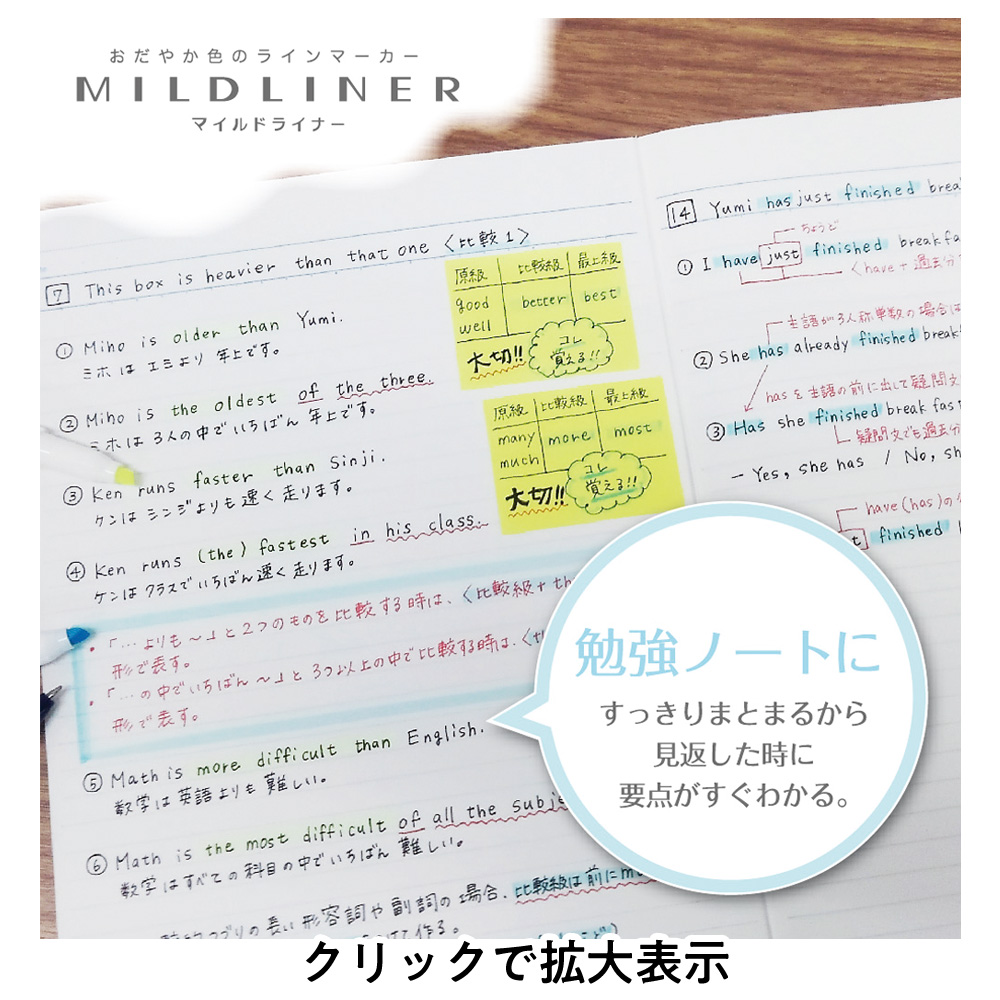 おだやか色のラインマーカー
MILDLINER
マイルドライナー
7 This box is heavier than that one 〈比較1〉
① Miho is older than Yumi.
ミホは エミより 年上です。
② Miho is the oldest of the three.
ミホは 3人の中で いちばん 年上です。
③ Ken runs faster than Sinji.
ケンは シンジよりも 速く 走ります。
④ Ken runs (the) fastest in his class.
ケンは クラスで いちばん 速く 走ります。
・「…よりも〜」と2つのものを比較する時は、〈比較級+th
形で表す。
・「…の中でいちばん〜」と 3つ以上の中で比較する時は、〈th
形で表す。
⑤ Math is more difficult than English.
数学は 英語よりも 難しい。
⑥ Math is the most difficult of all the subje
数学は すべての 科目の中で いちばん 難しい。
つづりの長い 形容詞や 副詞の場合、比較級は前にmo
作る。
原級 比較級 最上級
good better best
well
大切!! コレ
覚える!!
原級 比較級 最上級
many more most
much
大切!! コレ
覚える!!
14 Yumi has just finished brea
ちょうど
① I have just finished breakfa
〈have+過去分
主語が3人称単数の場合は
② She has already finished breakf
hasを主語の前に出して疑問文
③ Has she finished breakfast
疑問文でも過去分
− Yes, she has / No, sh
have(has)の
t finished
勉強ノートに
すっきりまとまるから
見返した時に
要点がすぐわかる。
クリックで拡大表示